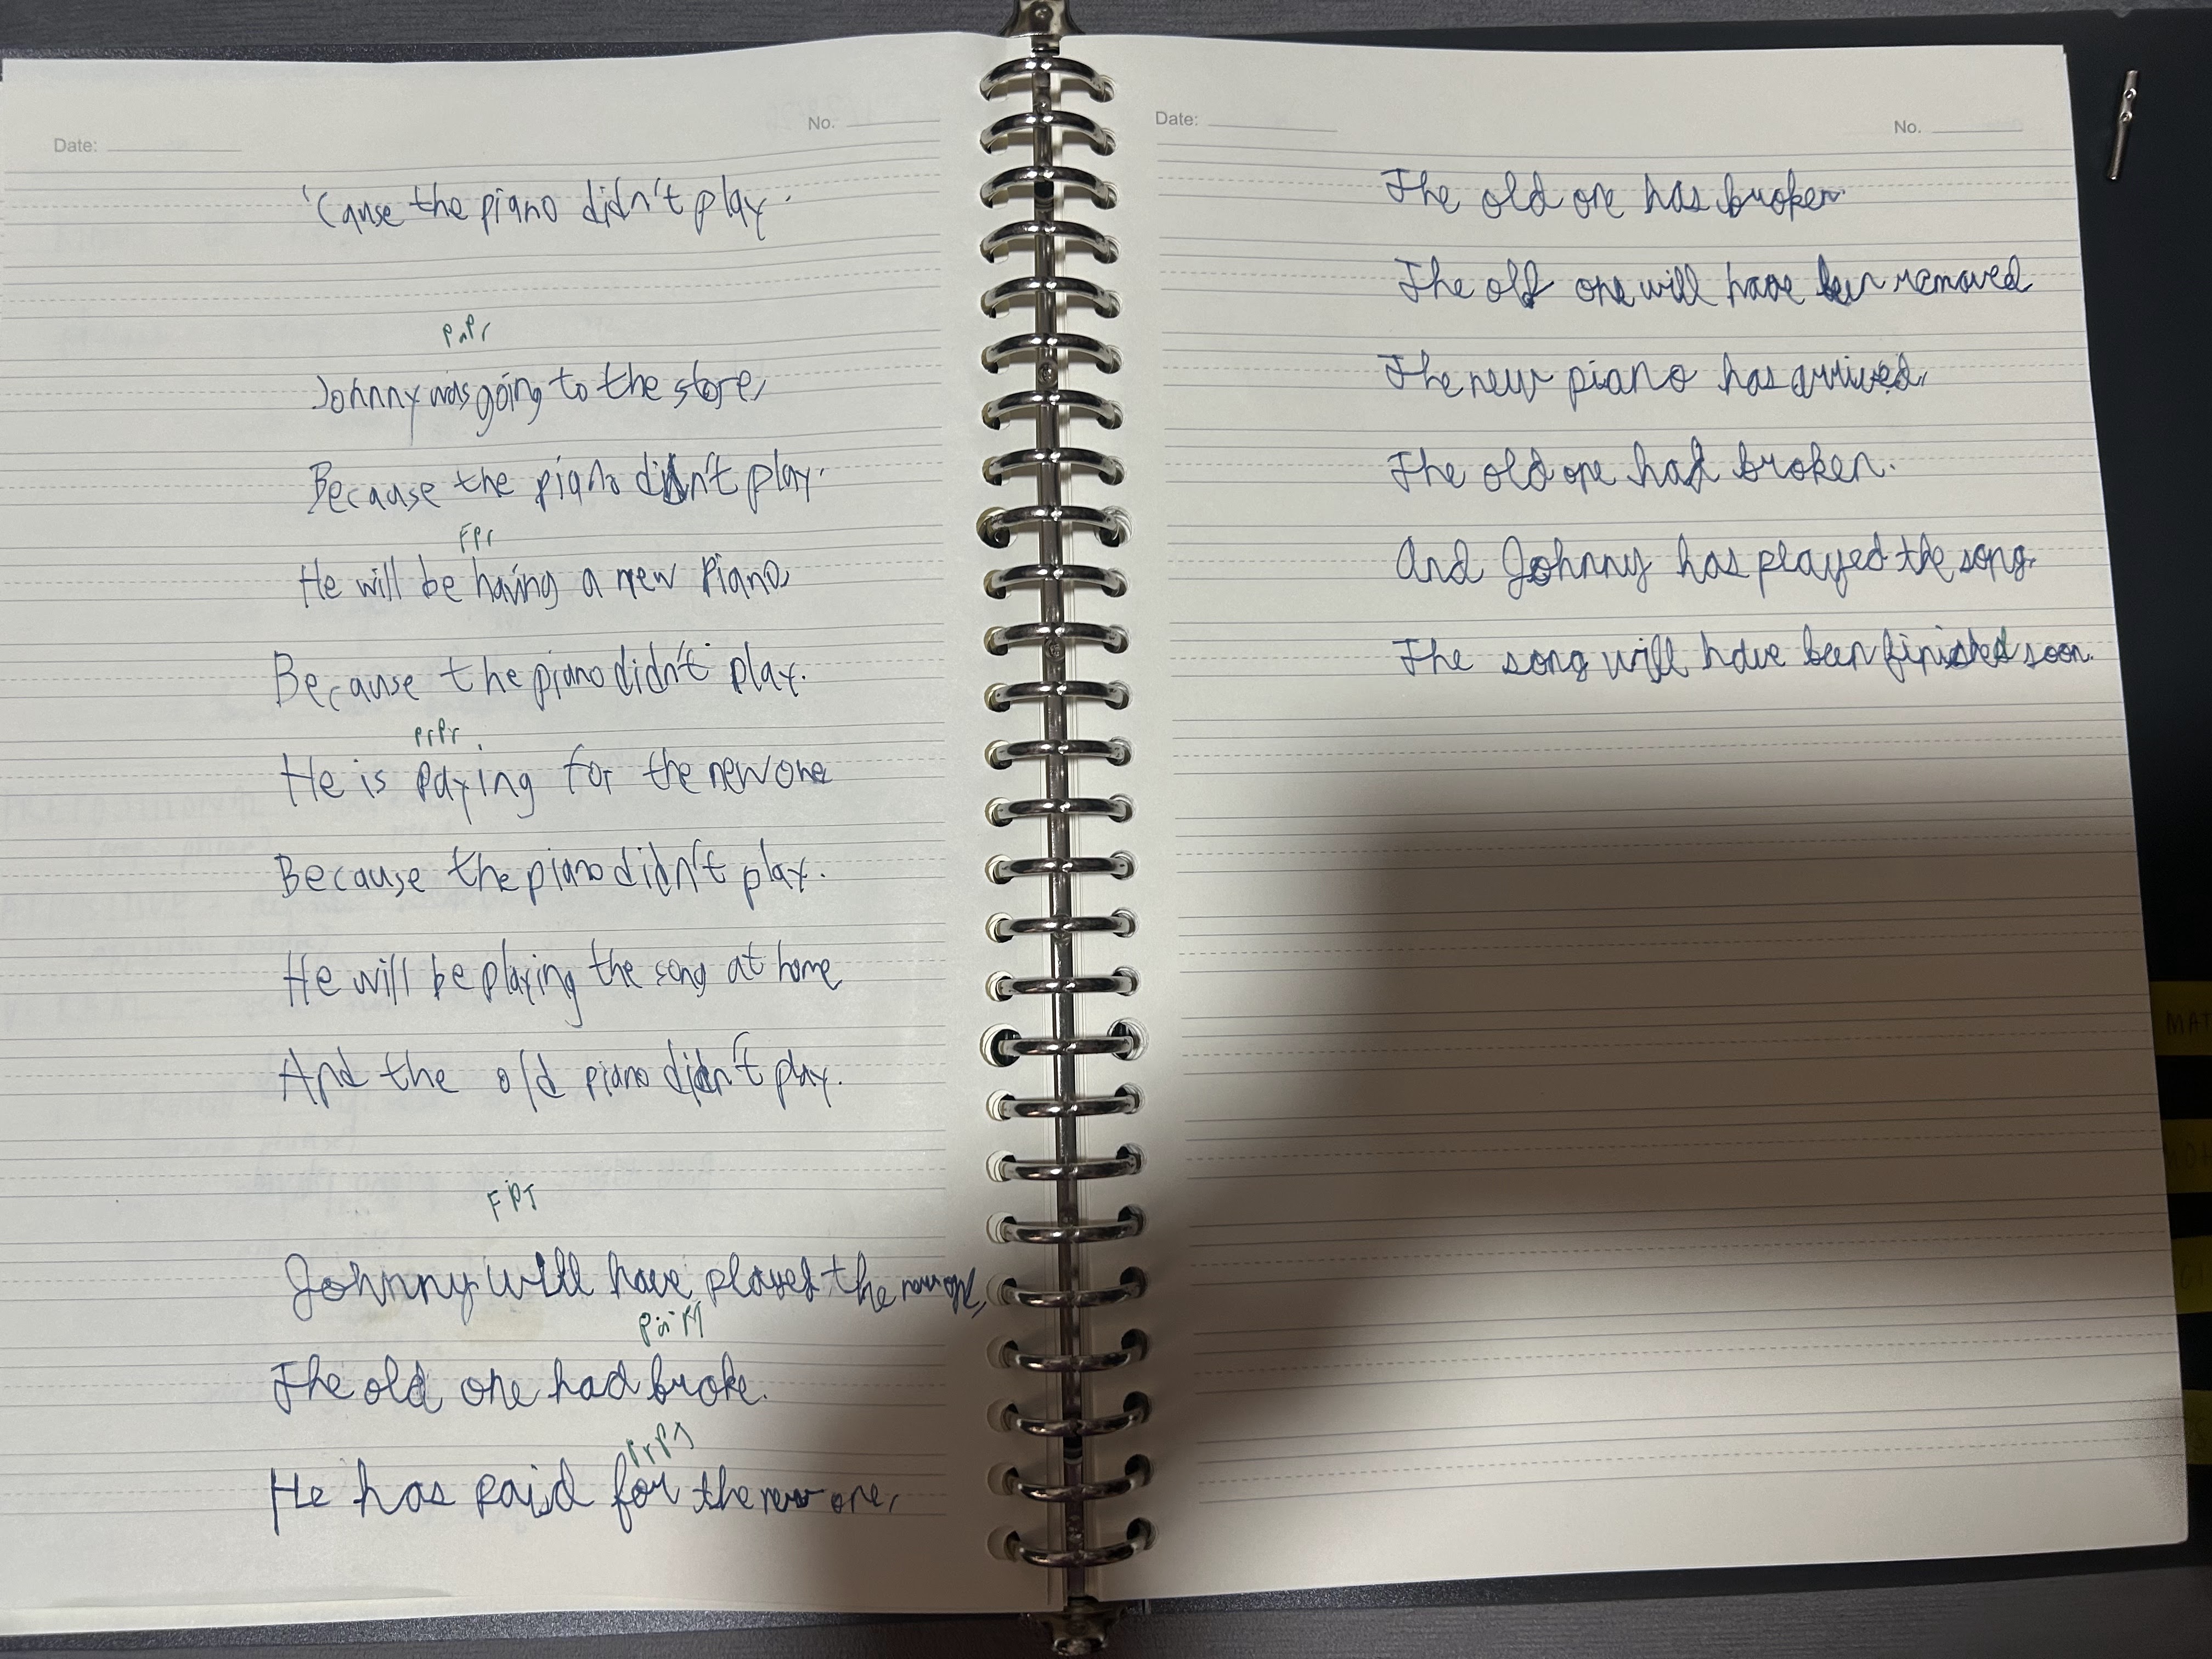 Date:
No.
'Cause the piano didn't play.
PaPr
Johnny was going to the store,
Because the piano didn't play.
FPr
He will be having a new piano,
Because the piano didn't play.
PrPr
He is paying for the new one
Because the piano didn't play.
He will be playing the song at home
And the old piano didn't play.
FPT
Johnny will have played the new one,
The old one had broke.
He has paid for the new one,
Date:
No.
The old one has broken.
The old one will have been removed
The new piano has arrived,
The old one had broken.
And Johnny has played the song.
The song will have been finished soon.